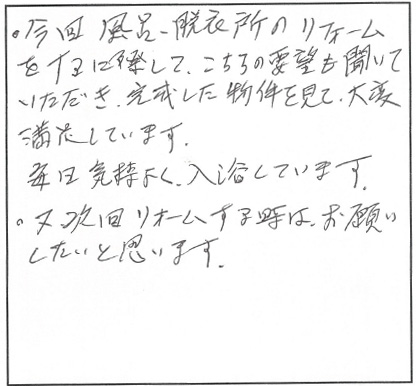 。今回 風呂、脱衣所のリフォーム
をするに際して、こちらの要望も聞いて
いただき、完成した物件を見て、大変
満足しています。
毎日気持よく、入浴しています。
。又次回リホームする時は、お願い
したいと思います。